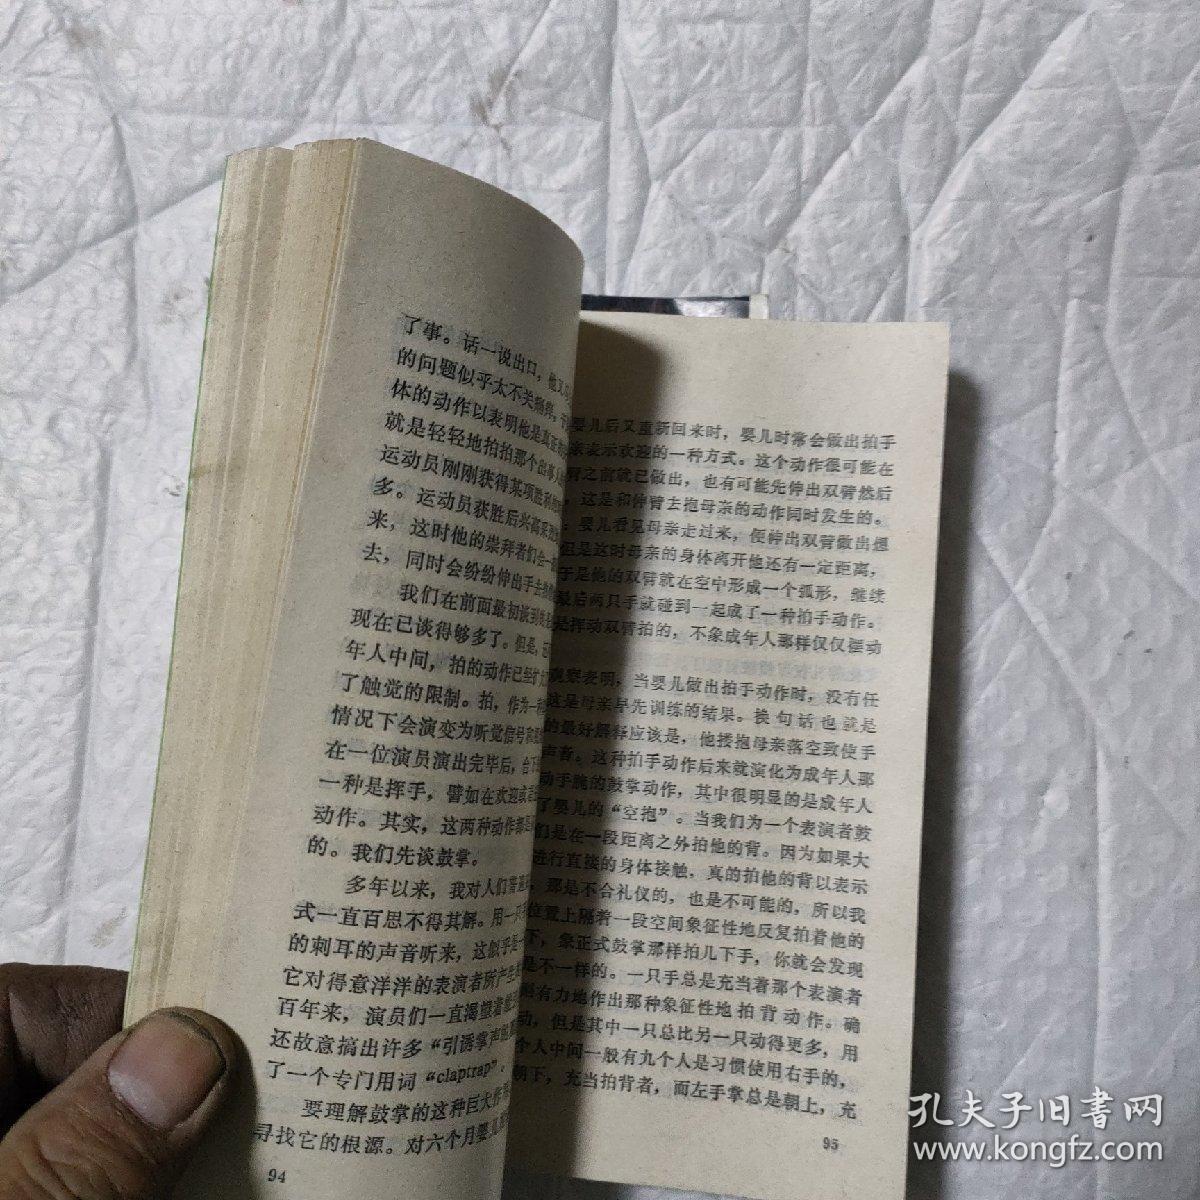 了事。话一说出口，他又
的问题似乎太不关
体的动作以表明他是真正
就是轻轻地拍拍那个出事人
运动员刚刚获得某项胜利
多。运动员获胜后兴高采
来，这时他的崇拜者们会一
去，同时会纷纷伸出手去
我们在前面最初谈到
现在已谈得够多了。但是，
年人中间，拍的动作已经扩大
了触觉的限制。拍，作为一
情况下会演变为听觉信号
在一位演员演出完毕后，台下
一种是挥手，譬如在欢迎或
动作。其实，这两种动作都是
的。我们先谈鼓掌。
多年以来，我对人们普遍
式一直百思不得其解。用一
的刺耳的声音听来，这似乎是一
它对得意洋洋的表演者所产生
百年来，演员们一直渴望着能
还故意搞出许多“引诱掌声
了一个专门用词“claptrap”
要理解鼓掌的这种巨大作
寻找它的根源。对六个月婴儿
94
婴儿后又重新回来时，婴儿时常会做出拍手
亲表示欢迎的一种方式。这个动作很可能在
臂之前就已做出，也有可能先伸出双臂然后
，这是和伸臂去抱母亲的动作同时发生的。
：婴儿看见母亲走过来，便伸出双臂做出想
但是这时母亲的身体离开他还有一定距离，
于是他的双臂就在空中形成一个弧形，继续
最后两只手就碰到一起成了一种拍手动作。
是挥动双臂拍的，不象成年人那样仅仅摆动
观察表明，当婴儿做出拍手动作时，没有任
这是母亲早先训练的结果。换句话也就是
的最好解释应该是，他搂抱母亲落空致使手
声音。这种拍手动作后来就演化为成年人那
动手腕的鼓掌动作，其中很明显的是成年人
了婴儿的“空抱”。当我们为一个表演者鼓
们是在一段距离之外拍他的背。因为如果大
进行直接的身体接触，真的拍他的背以表示
，那是不合礼仪的，也是不可能的，所以我
位置上隔着一段空间象征性地反复拍着他的
下，象正式鼓掌那样拍几下手，你就会发现
是不一样的。一只手总是充当着那个表演者
有力地作出那种象征性地拍背动作。确
动，但是其中一只总比另一只动得更多，用
个人中间一般有九个人是习惯使用右手的，
朝下，充当拍背者，而左手掌总是朝上，充
95
孔夫子旧书网
www.kongfz.com